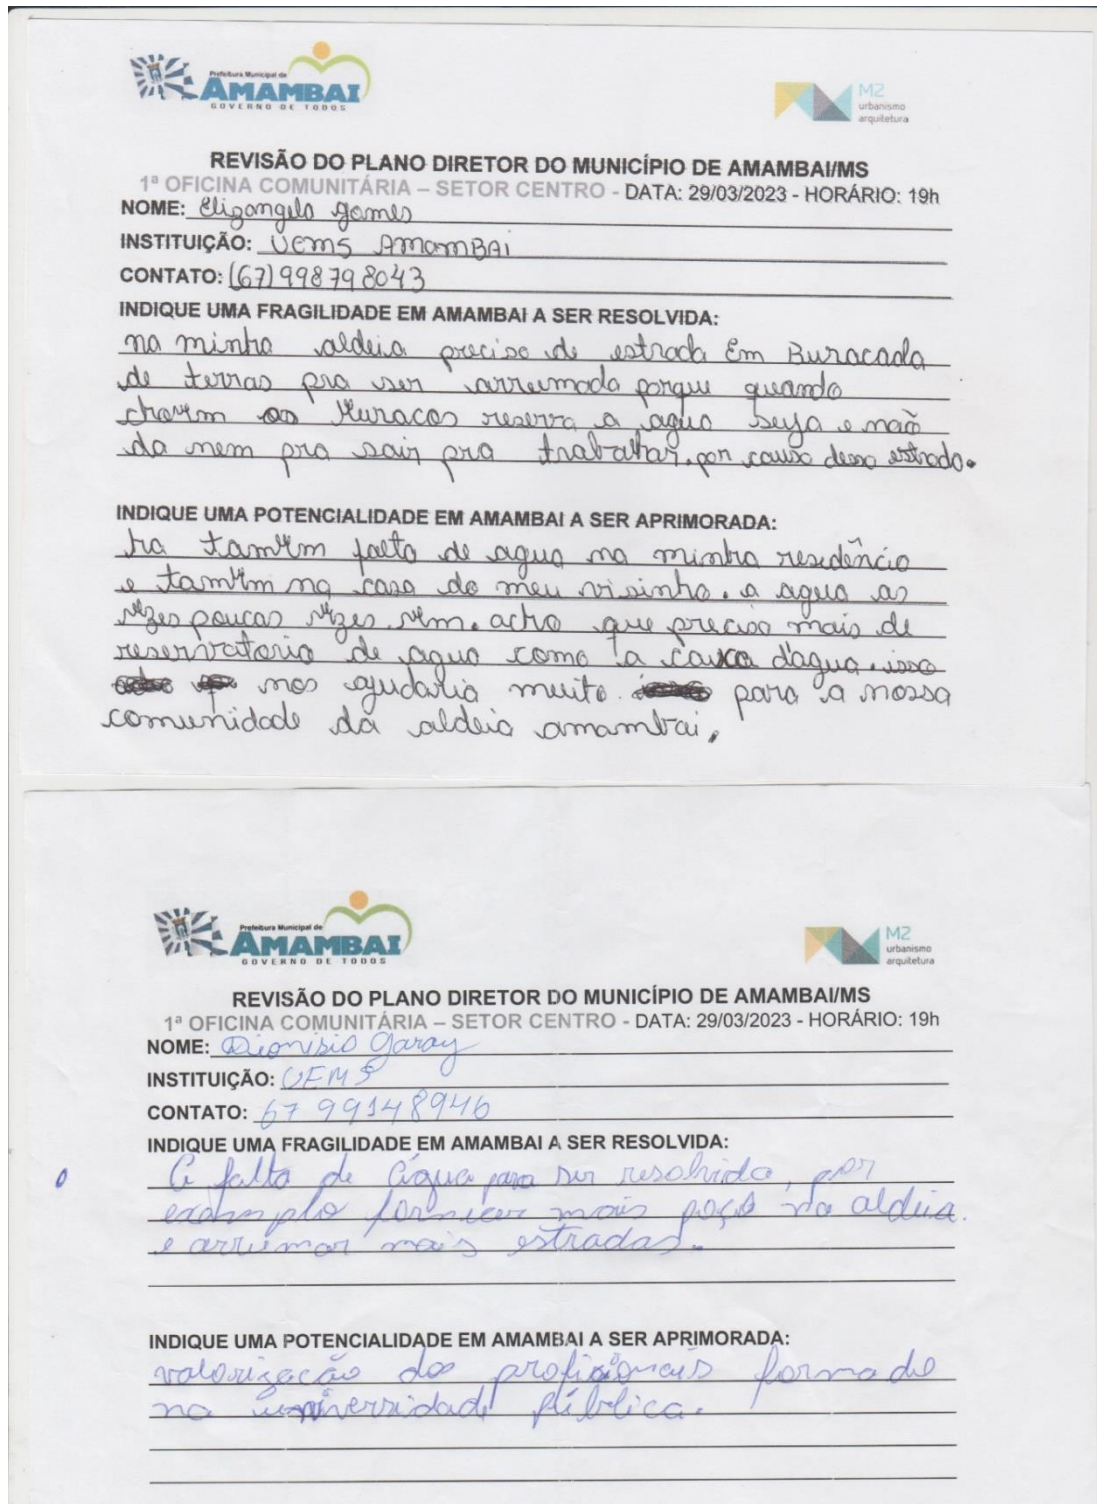 Prefeitura Municipal de
AMAMBAI
GOVERNO DE TODOS
M2
urbanismo
arquitetura
REVISÃO DO PLANO DIRETOR DO MUNICÍPIO DE AMAMBAI/MS
1ª OFICINA COMUNITÁRIA – SETOR CENTRO - DATA: 29/03/2023 - HORÁRIO: 19h
NOME: Elizangela Gomes
INSTITUIÇÃO: UEMS AMAMBAI
CONTATO: (67) 998798043
INDIQUE UMA FRAGILIDADE EM AMAMBAI A SER RESOLVIDA:
na minha aldeia precisa de estrada Em Buracada
de terras pra ser arrumada porque quando
chovem os Buracos reserva a agua seja e não
da nem pra sair pra trabalhar. por causa dessa estrada.
INDIQUE UMA POTENCIALIDADE EM AMAMBAI A SER APRIMORADA:
ha também falta de agua na minha residência
e também na casa do meu visinho. a agua as
vezes poucas vezes vem. acho que precisa mais de
reservatorio de agua como a caixa d'agua. isso
nos ajudaria muito. para a nossa
comunidade da aldeia amambai.
Prefeitura Municipal de
AMAMBAI
GOVERNO DE TODOS
M2
urbanismo
arquitetura
REVISÃO DO PLANO DIRETOR DO MUNICÍPIO DE AMAMBAI/MS
1ª OFICINA COMUNITÁRIA – SETOR CENTRO - DATA: 29/03/2023 - HORÁRIO: 19h
NOME: Dionisio Garay
INSTITUIÇÃO: UEMS
CONTATO: 67 99148946
INDIQUE UMA FRAGILIDADE EM AMAMBAI A SER RESOLVIDA:
A falta de água para ser resolvida, por
exemplo fornecer mais poço na aldeia.
e arrumar mais estradas.
INDIQUE UMA POTENCIALIDADE EM AMAMBAI A SER APRIMORADA:
valorização dos profisionais formado
na universidade pública.